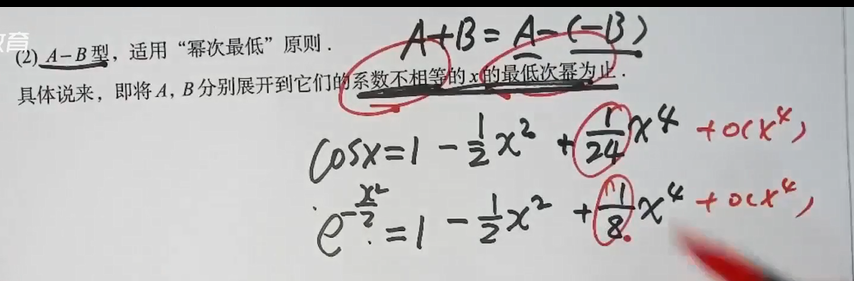 育
A+B=A-(-B)
(2) A-B型，适用“幂次最低”原则．
具体说来，即将A，B分别展开到它们的系数不相等的x的最低次幂为止．
cosx=1-\frac{1}{2}x²+\frac{1}{24}x⁴+o(x⁴)
e^{-\frac{x²}{2}}=1-\frac{1}{2}x²+\frac{1}{8}x⁴+o(x⁴)